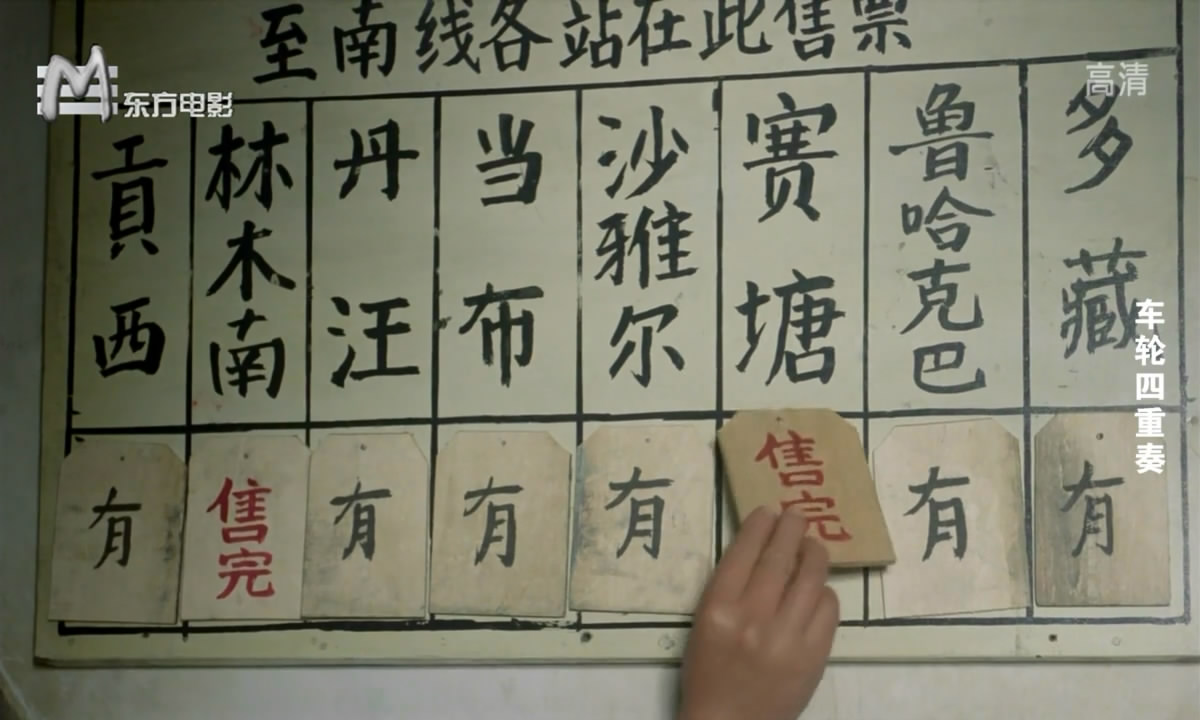 至南线各站在此售票
东方电影
高清
贡西
林木南
丹汪
当布
沙雅尔
赛塘
鲁哈克巴
多藏
有
售完
有
有
有
售完
有
有
车轮四重奏